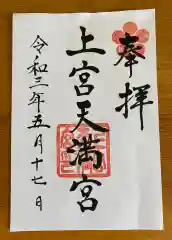 奉拝
上宮天満宮
令和三年五月十七日